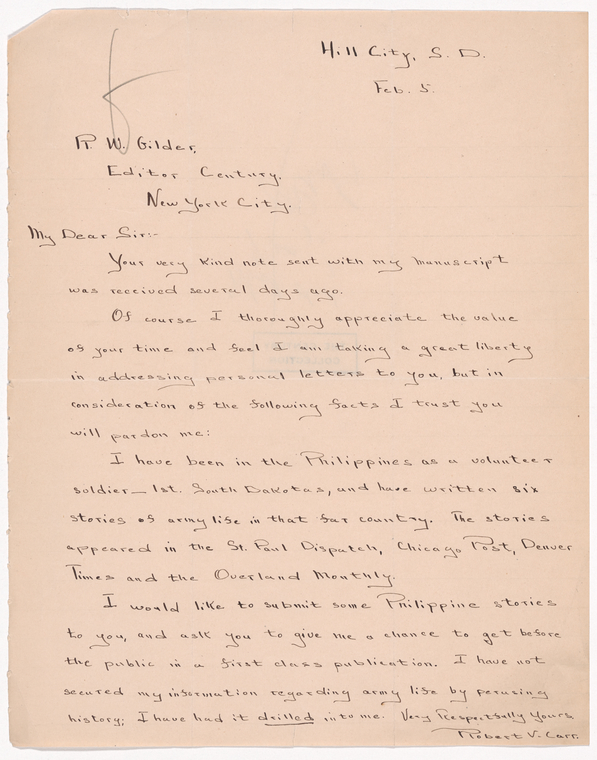 Hill City, S. D.
Feb. 5.
R. W. Gilder,
Editor Century,
New York City.
My Dear Sir:-
Your very kind note sent with my manuscript
was received several days ago.
Of course I thoroughly appreciate the value
of your time and feel I am taking a great liberty
in addressing personal letters to you, but in
consideration of the following facts I trust you
will pardon me:
I have been in the Philippines as a volunteer
soldier—1st. South Dakotas, and have written six
stories of army life in that far country. The stories
appeared in the St. Paul Dispatch, Chicago Post, Denver
Times and the Overland Monthly.
I would like to submit some Philippine stories
to you, and ask you to give me a chance to get before
the public in a first class publication. I have not
secured my information regarding army life by perusing
history; I have had it drilled into me. Very Respectfully Yours,
Robert V. Carr.